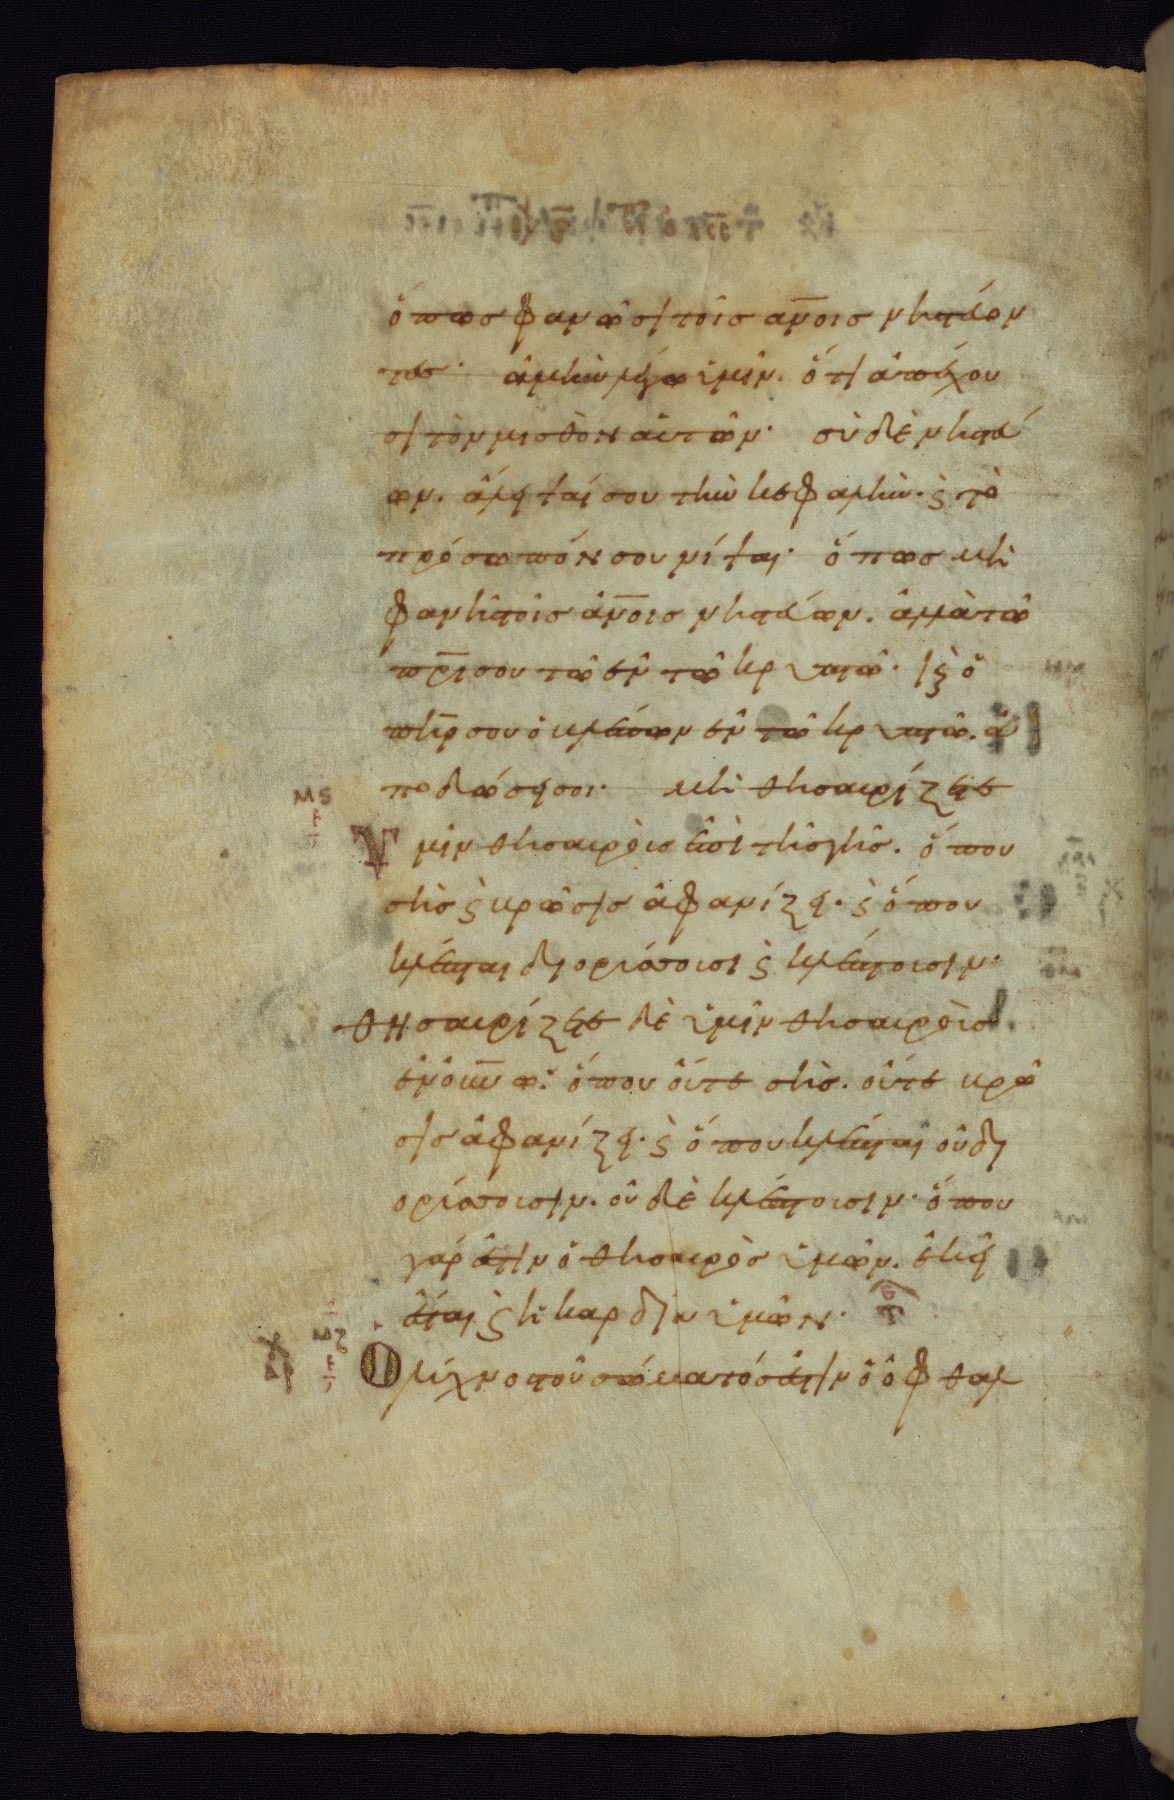 ὅπως φανῶσι τοῖς ἀν̅οις νηστεύον
τες· ἀμὴν λέγω ὑμῖν. ὅτι ἀπέχου
σι τὸν μισθὸν αὐτῶν· σὺ δὲ νηστεύ
ων. ἄλειψαί σου τὴν κεφαλὴν. ϗ τὸ
πρόσωπόν σου νίψαι· ὅπως μὴ
φανῆς τοῖς ἀν̅οις νηστεύων. ἀλλὰ τῶ
πρ̅ι σου τῶ ἐν τῶ κρυπτῶ· ϗ ὁ
πη̅ρ σου ὁ βλέπων ἐν τῶ κρυπτῶ. ἀ
ποδώσει σοι· μὴ θησαυρίζετε
ὑμῖν θησαυροὺς ἐπὶ τῆς γῆς. ὅπου
σὴς ϗ βρῶσις ἀφανίζει· ϗ ὅπου
κλέπται διορύσσουσι ϗ κλέπτουσιν·
θησαυρίζετε δὲ ὑμῖν θησαυροὺς
ἐν οὐν̅ω· ὅπου οὔτε σὴς. οὔτε βρῶ
σις ἀφανίζει· ϗ ὅπου κλέπται οὐ δι
ορύσσουσιν. οὐδὲ κλέπτουσιν· ὅπου
γάρ ἐστιν ὁ θησαυρὸς ὑμῶν. ἐκεῖ
ἔσται ϗ ἡ καρδία ὑμῶν·
Ὁ λύχνος τοῦ σώματός ἐστιν ὁ ὀφθαλ